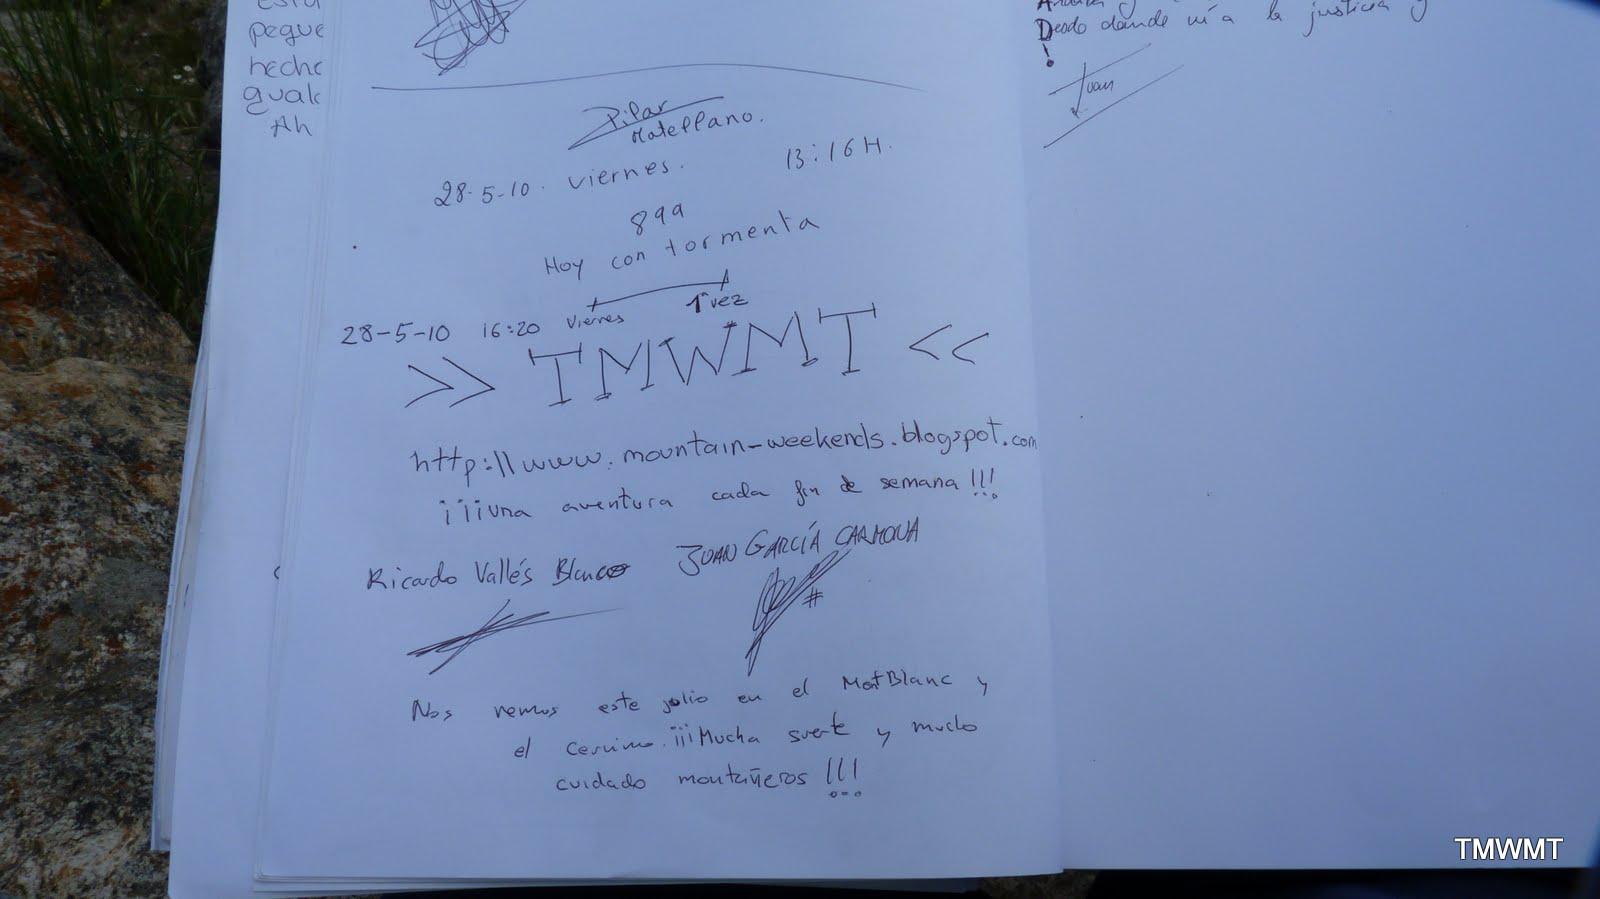 pegue
hecho
guald
Ah
Desde donde ví a la justicia y
!
Juan
Pilar
Matellano.
28-5-10. viernes. 13:16 H.
899
Hoy con tormenta
28-5-10 16:20 Viernes 1ª vez
>> TMWMT <<
http://www.mountain-weekends.blogspot.com
¡¡¡una aventura cada fin de semana!!!
Ricardo Vallés Blanco JUAN GARCÍA CARMONA
#
Nos vemos este julio en el MontBlanc y
el Cervino. ¡¡¡Mucha suerte y mucho
cuidado montañeros!!!
TMWMT